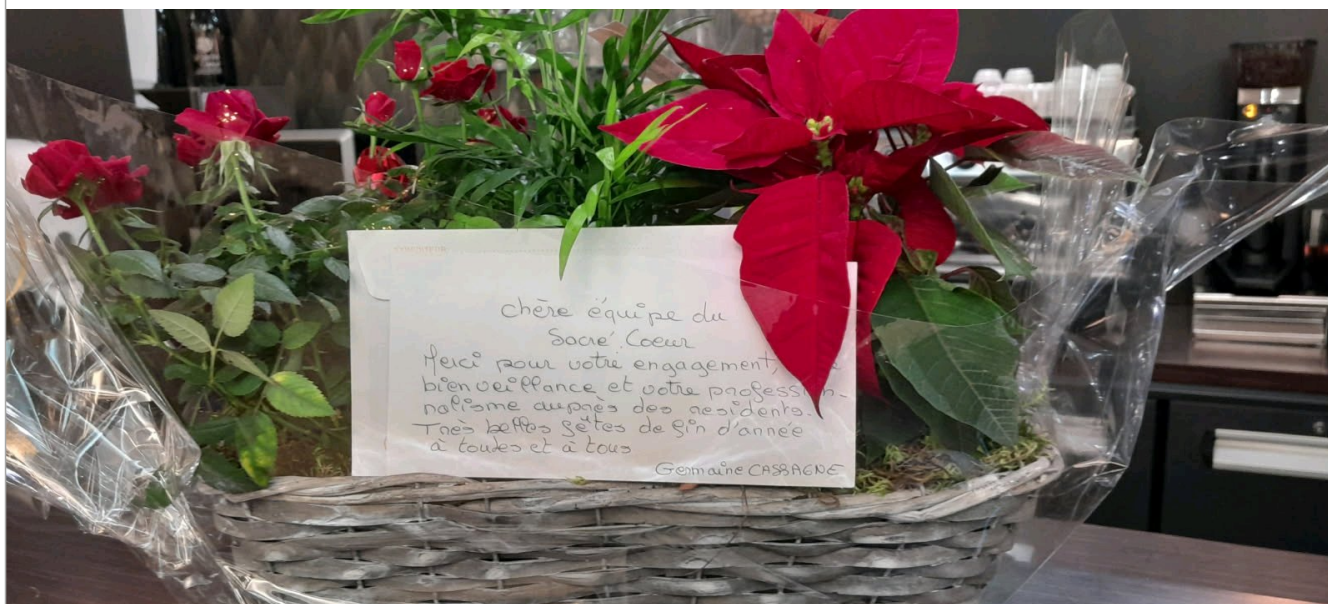 chère équipe du
Sacré. Coeur
Merci pour votre engagement,
bienveillance et votre profession-
nalisme auprès des residents.
Très belles fêtes de fin d'année
à toutes et à tous
Germaine CASSAGNE